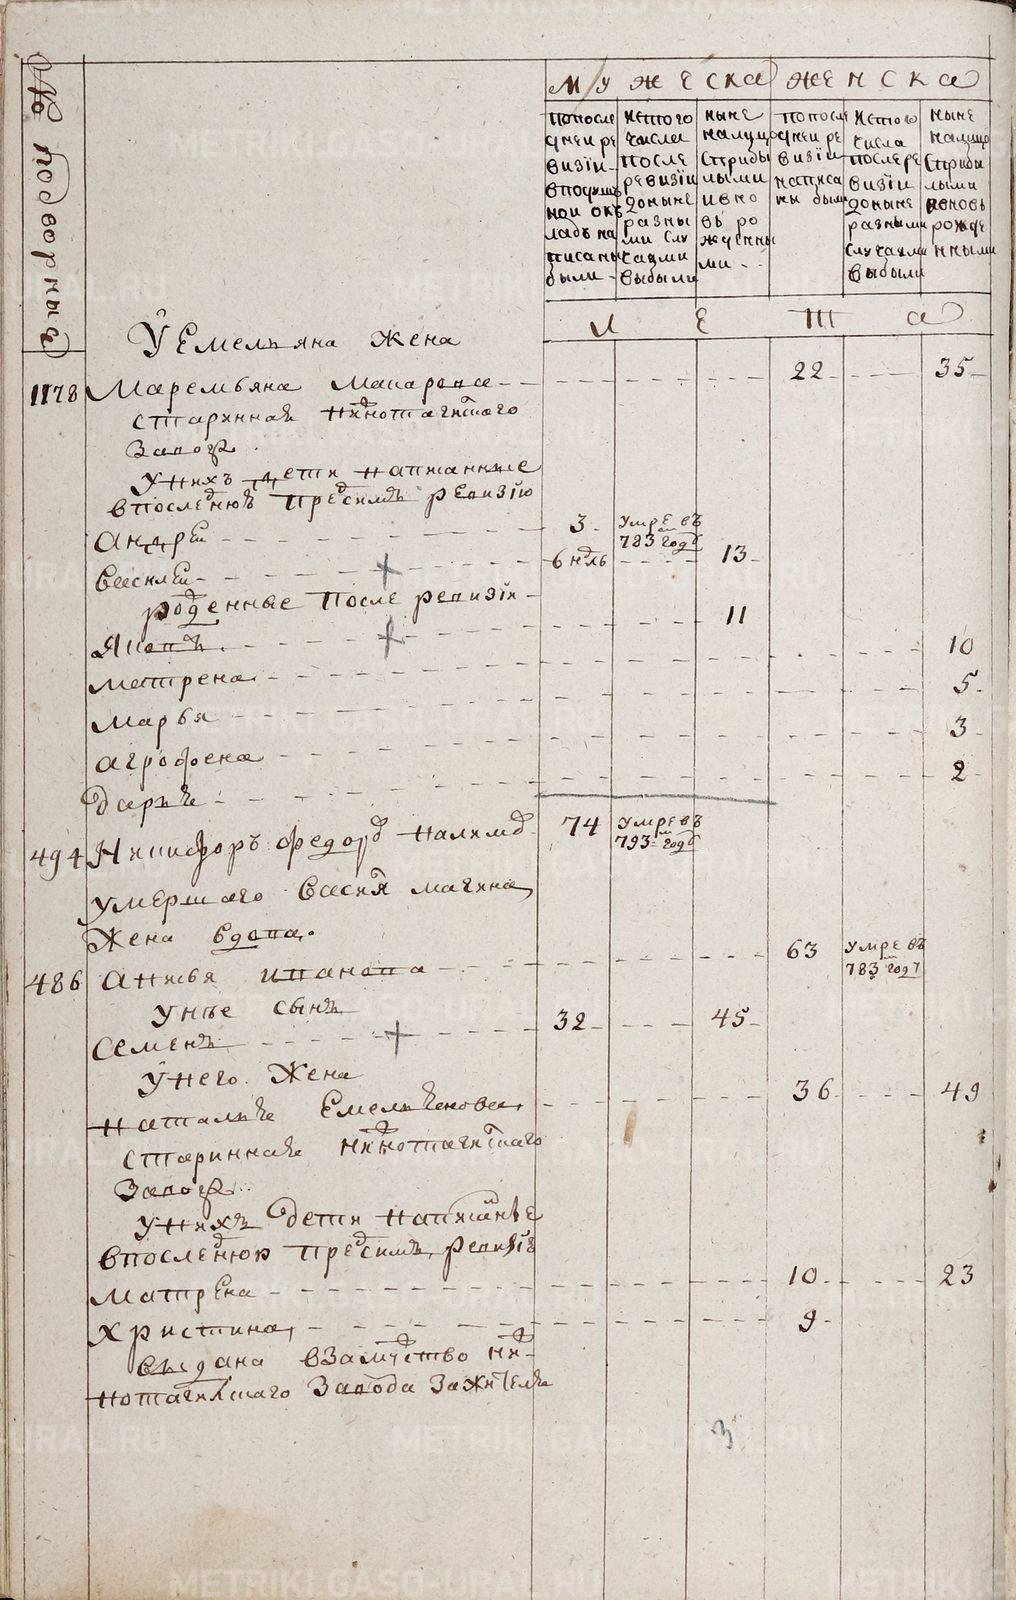 № подворныя
мужеска женска
попосле
дней ре
визiи
вподуш
ной окъ
ладъ на
писаны
были
истого
числа
после
ревизiи
доныне
разны
ми слу
чаями
выбыли
ныне
налицо
сприбы
лыми
ивно
въ ро
жденны
ми
попосле
дней ре
визiи
написа
ны были
истого
числа
послере
визiи
доныне
разными
случаями
выбыли
ныне
налицо
сприбы
лыми
вновь
рожде
нными
лета
У Емельяна жена
1178 Маремьяна Макарова 22 35
стариннае нижнотагилскаго
завода
Унихъ дети написанные
впоследнюю предсимъ ревизiю
Андрей 3 умре въ 783 годѣ
Василей 6 ндль 13
рожденные после ревизiи
Яковъ 11
Матрена 10
Марья 5
Агрофена 3
Дарья 2
494 Никифоръ Федоровъ Налимовъ 74 умре въ 793 годѣ
умершаго Василья Магина
жена вдова
486 Анисья Иванова 63 умре въ 783 году
унее сынъ
Семенъ 32 45
Унего жена
Наталья Емельянова 36 49
стариннае нижнотагилскаго
завода
Унихъ дети написанные
впоследнюю предсимъ ревизiю
Матрена 10 23
Христина 9
выдана взамужство ниж-
нотагилскаго завода зажителя
3
METRIKI.GASO-URAL.RU